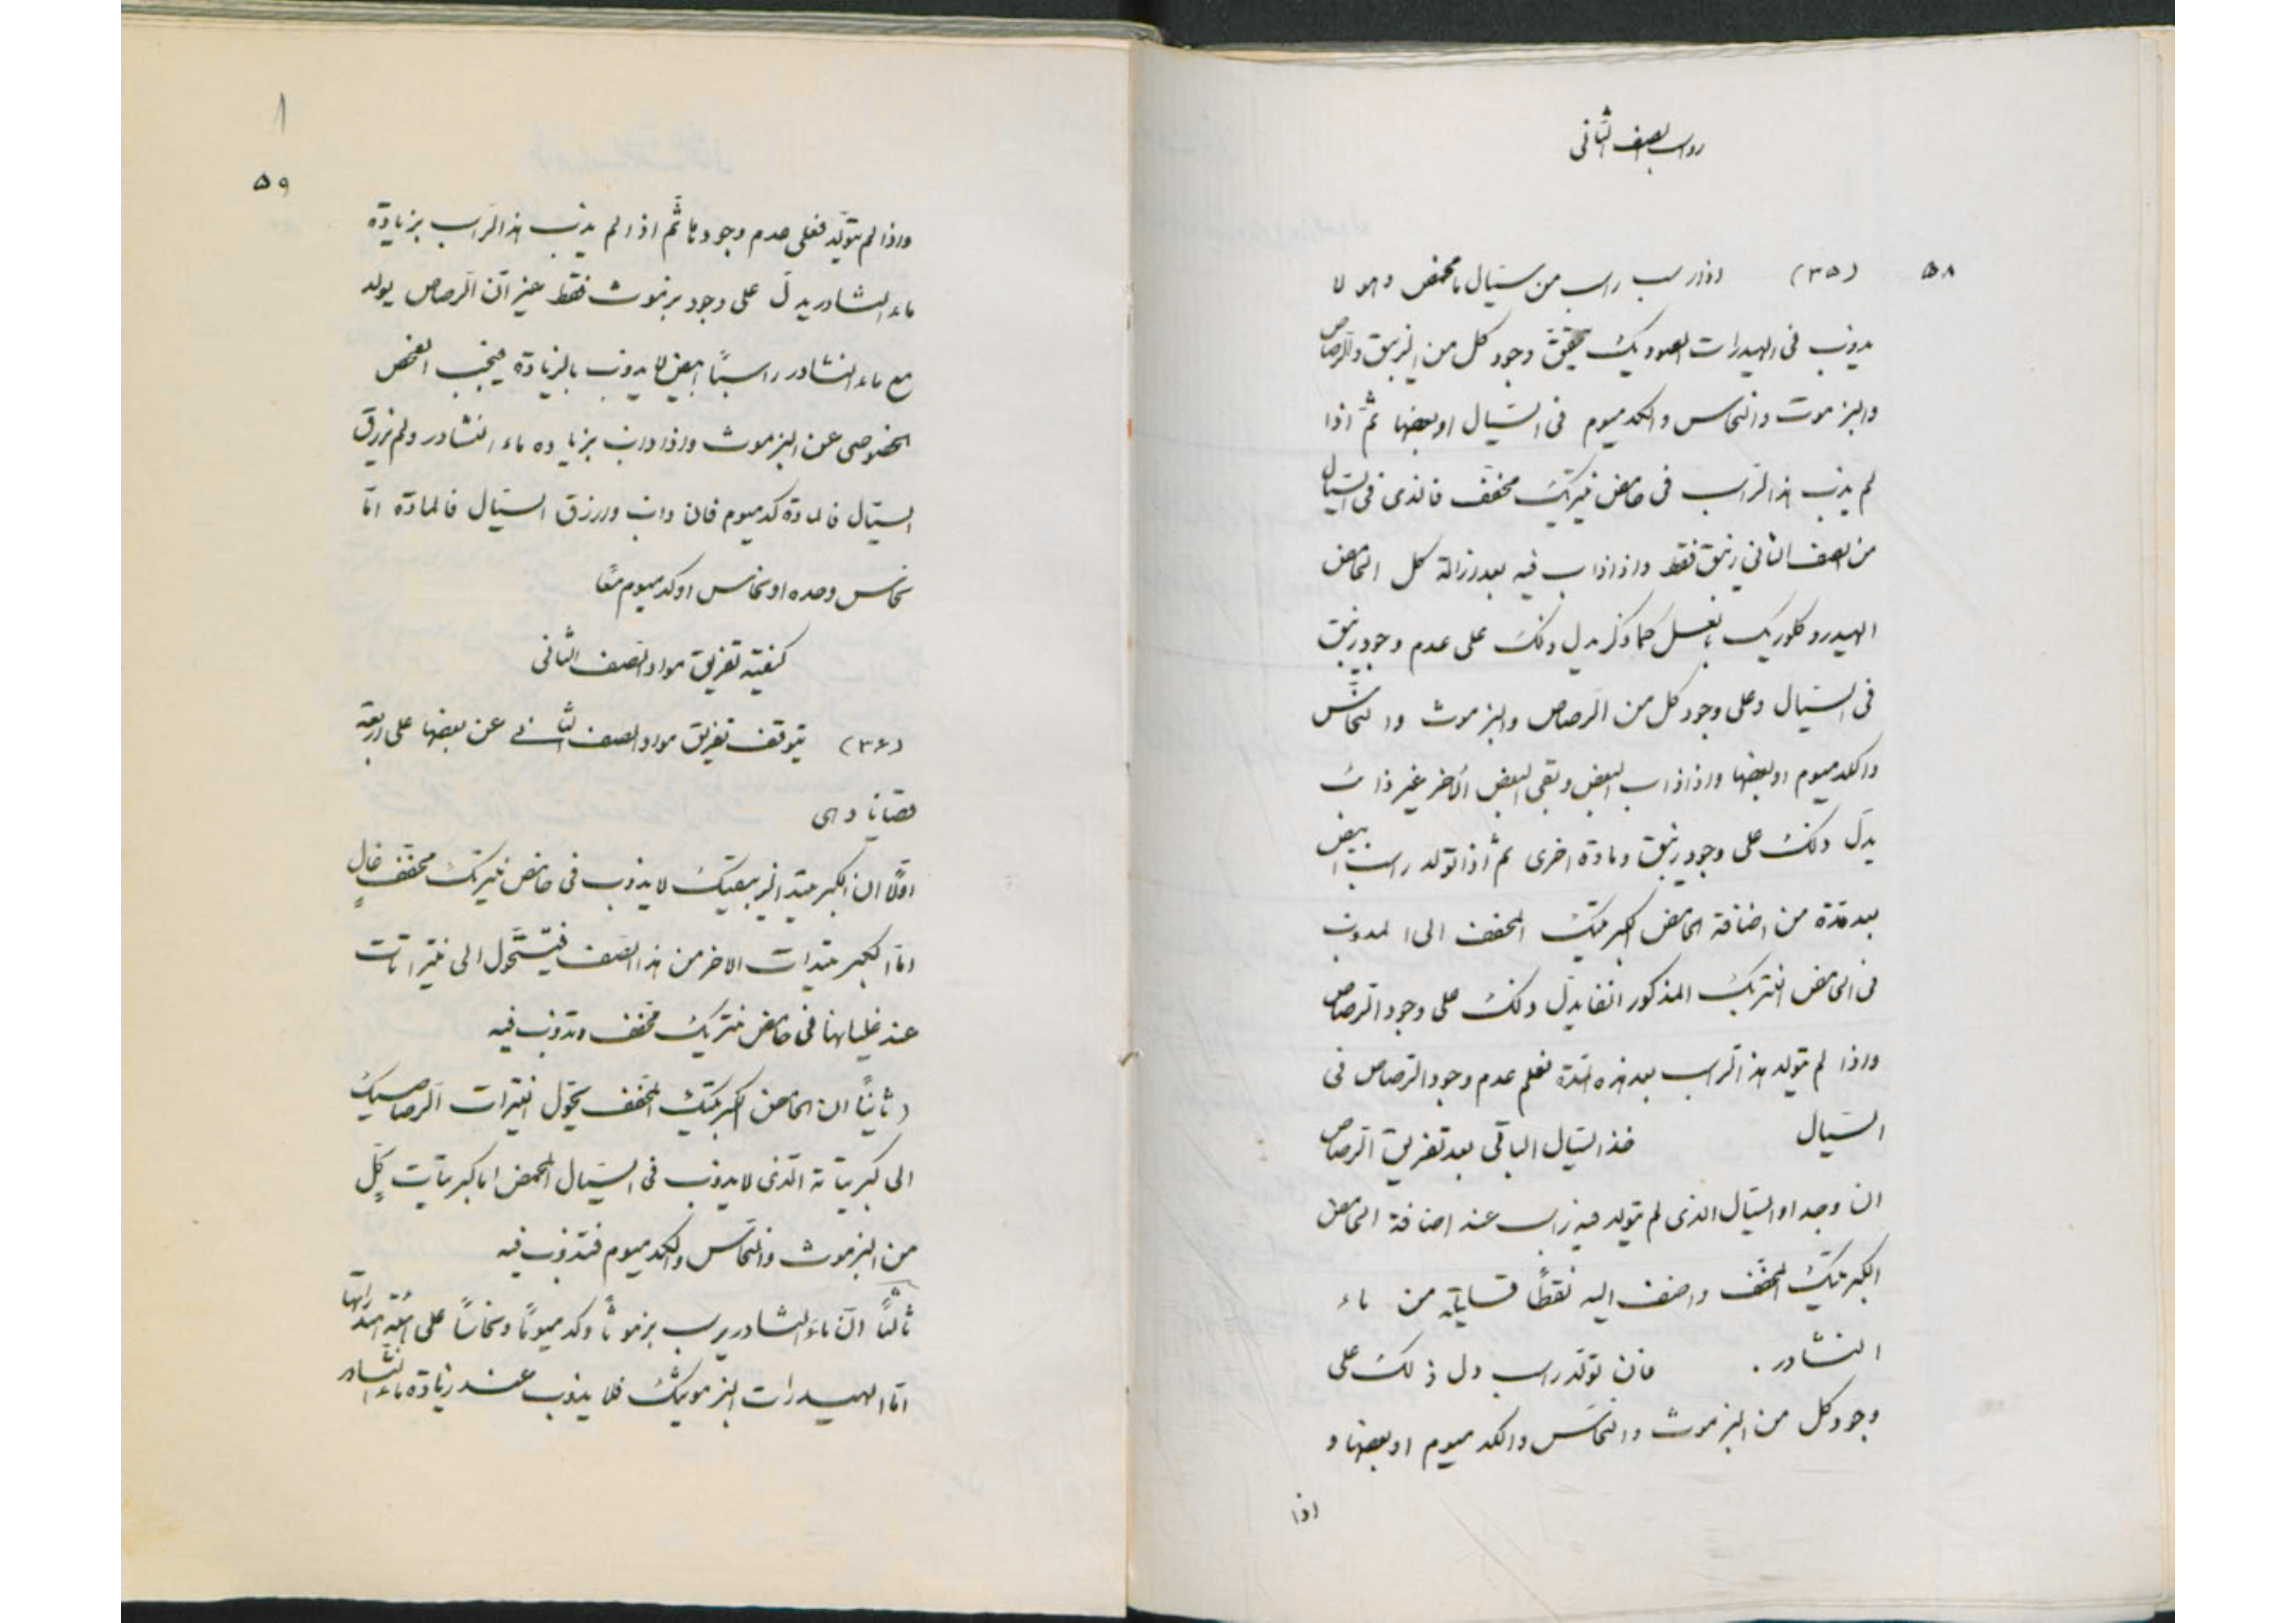 رواسب الصف الثانی
۵۸ (۳۵) اذا رسب راسب من سیّال ما محمض و هو لا
یذوب فی الهیدرات الصودیک تحقّق وجود کل من الزیبق والرصاص
والبزموت والنحاس والکدمیوم فی السیّال او بعضها ثمّ اذا
لم یذب هذا الراسب فی حامض نیتریک مخفف فالذی فی السیّال
من الصف الثانی زیبق فقط واذا ذاب فیه بعد ازالة کل الحامض
الهیدروکلوریک بالغسل کما ذکر یدل ذلک علی عدم وجود زیبق
فی السیّال وعلی وجود کل من الرصاص والبزموث والنحاس
والکدمیوم او بعضها واذا ذاب البعض وبقی البعض الآخر غیر ذائب
یدلّ ذلک علی وجود زیبق ومادة اخری ثم اذا تولد راسب ابیض
بعد مدّة من اضافة الحامض الکبریتیک المخفف الی المذوب
فی الحامض النتریک المذکور انفا یدلّ ذلک علی وجود الرصاص
واذا لم یتولد هذا الراسب بعد هذه المدّة فعلم عدم وجود الرصاص فی
السیّال خذ السیّال الباقی بعد تفریق الرصاص
ان وجد او السیّال الذی لم یتولد فیه راسب عند اضافة الحامض
الکبریتیک المخفف واضف الیه نقطاً من ماء
النشادر . فان تولّد راسب دل ذلک علی
وجود کل من البزموث والنحاس والکدمیوم او بعضها و
اذا
۵۹
واذا لم یتولّد فعلی عدم وجودها ثمّ اذا لم یذب هذا الراسب بزیادة
ماء النشادر یدلّ علی وجود بزموث فقط غیر انّ الرصاص یولد
مع ماء النشادر راسباً ابیض لا یذوب بالزیادة فیجب الفحص
الخصوصی عن البزموث واذا ذاب بزیاده ماء النشادر ولم یزرق
السیّال فالمادة کدمیوم فان ذاب وازرق السیّال فالمادة امّا
نحاس وحده او نحاس اوکدمیوم معًا
کیفیة تفریق مواد الصف الثانی
(۳۶) یتوقف تفریق مواد الصف الثانی عن بعضها علی اربعة
قضایا وهی
اوّلًا ان الکبریتید الزیبقیک لا یذوب فی حامض نیتریک مخفّف غالٍ
امّا الکبریتیدات الاخر من هذا الصف فیتحوّل الی نیتراتات
عند غلیانها فی حامض نتریک مخفف وتذوب فیه
وثانیاً ان الحامض الکبریتیک المخفّف یحوّل النیترات الرصاصیک
الی کبریتاته الّذی لا یذوب فی السیّال المحمض اما کبریتات کلٍّ
من البزموث والنحاس والکدمیوم فتذوب فیه
ثالثاً انّ ماء النشادر یرسب بزموثاً وکدمیوماً ونحاساً علی هیئة هیدراتها
امّا الهیدرات البزموثیک فلا یذوب عند زیادة ماء النشادر